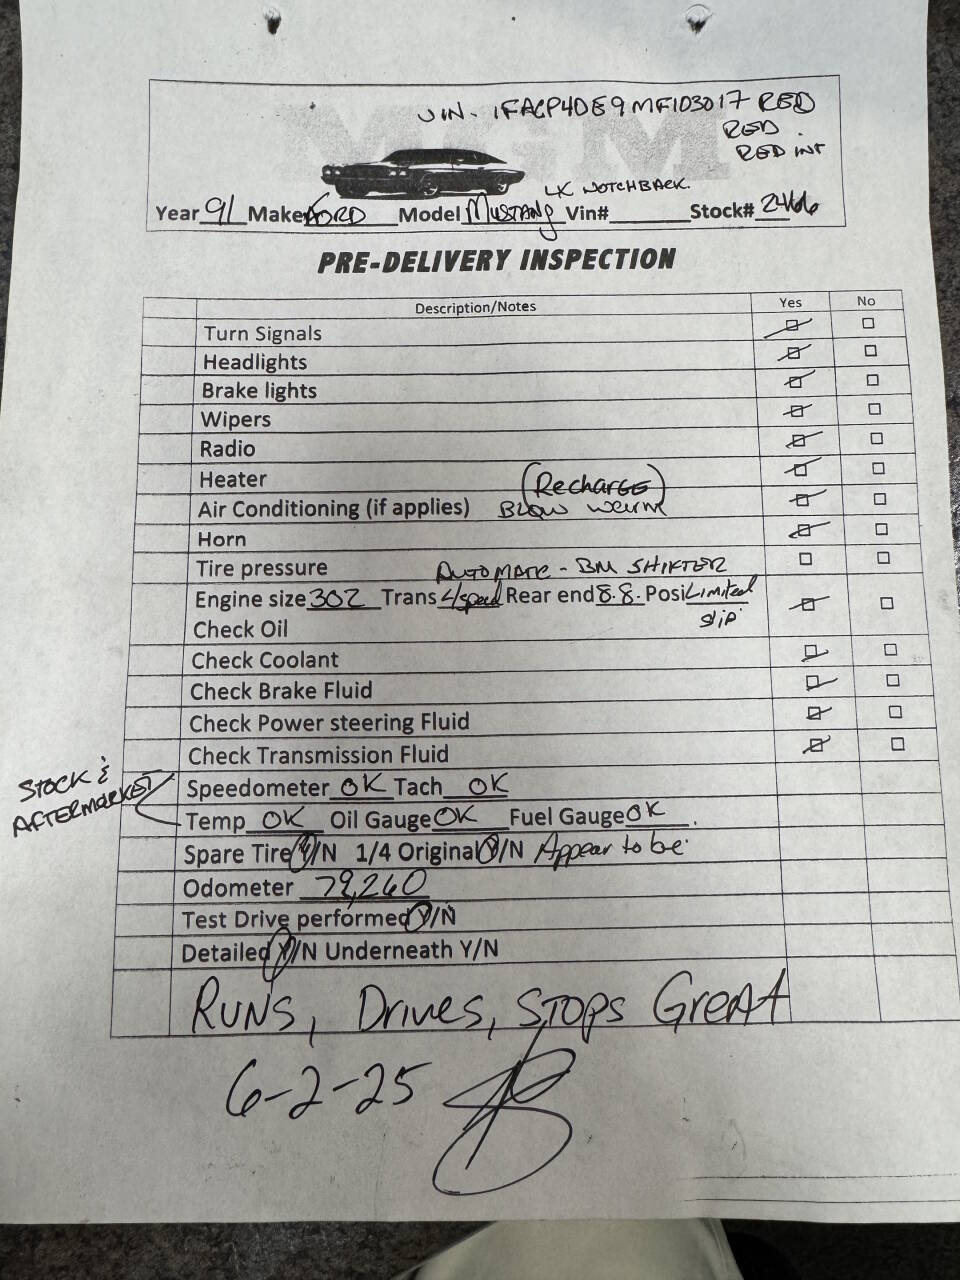 VIN. 1FACP4DE9MF103017 RED
RED.
RED INT
LX NOTCHBACK.
Year 91 Make FORD Model MUSTANG Vin# Stock# 2466
PRE-DELIVERY INSPECTION
Description/Notes Yes No
Turn Signals
Headlights
Brake lights
Wipers
Radio
Heater
(Recharge)
Air Conditioning (if applies) BLOW WARM
Horn
Tire pressure
AUTOMATIC - BM SHIFTER
Engine size 302 Trans 4/speed Rear end 8.8. Posi Limited
slip
Check Oil
Check Coolant
Check Brake Fluid
Check Power steering Fluid
Check Transmission Fluid
STOCK &
AFTERMARKET
Speedometer OK Tach OK
Temp OK Oil Gauge OK Fuel Gauge OK.
Spare Tire Y/N 1/4 Original Y/N Appear to be.
Odometer 79,260
Test Drive performed Y/N
Detailed Y/N Underneath Y/N
RUNS, Drives, STOPS Great
6-2-25